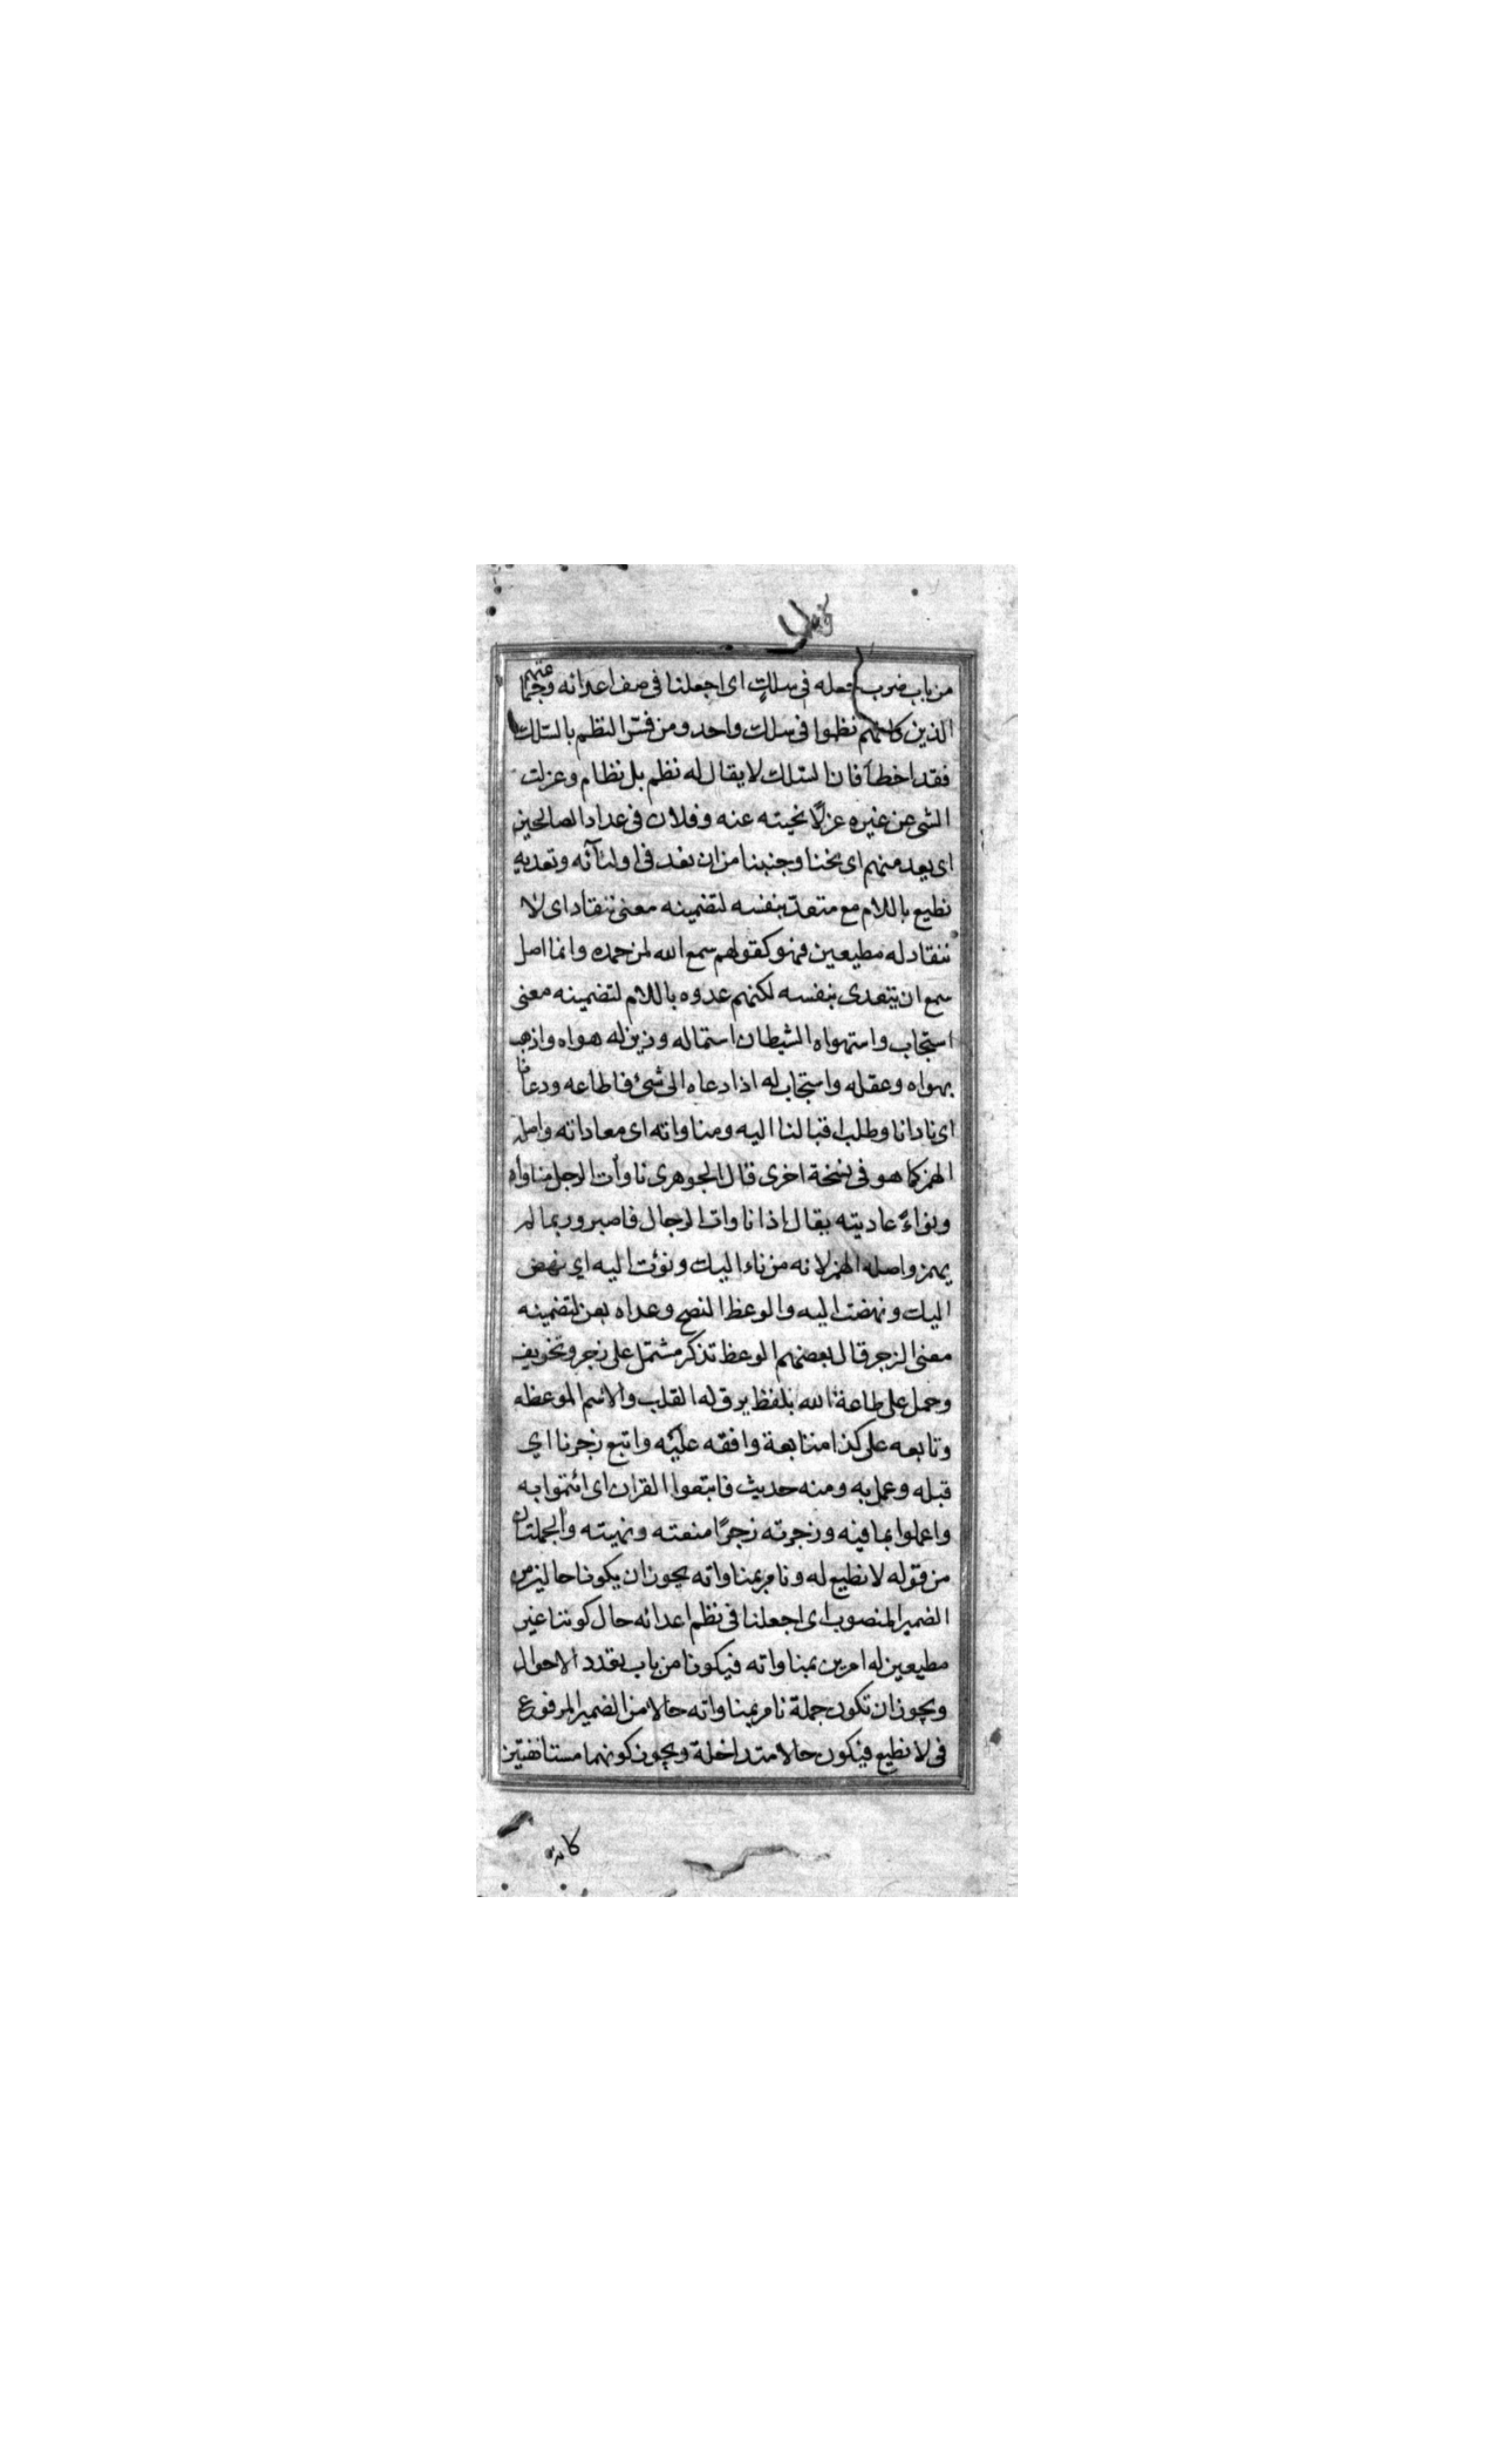 من باب ضرب جعله فى سلك اى اجعلنا فى صف اعدائه وجماعتهم
الذين كانهم نظموا فى سلك واحد ومن فسر النظم بالسلك
فقد اخطأ فان السلك لا يقال له نظم بل نظام وعزلت
الشى عن غيره عزلًا نحيته عنه وفلان فى عداد الصالحين
اى يعد منهم اى نحنا وجنبنا من ان نعد فى اوليآئه وتعديه
نطيع باللام مع متعد بنفسه لتضمينه معنى ننقاد اى لا
ننقاد له مطيعين فهو كقولهم سمع الله لمن حمده وانما اصل
سمع ان يتعدى بنفسه لكنهم عدوه باللام لتضمينه معنى
استجاب واستهواه الشيطان استماله وزين له هواه واذهب
بهواه وعقله واستجاب له اذا دعاه الى شئ فاطاعه ودعانا
اى نادانا وطلب اقبالنا اليه ومناواته اى معاداته واصله
الهمز كما هو فى نسخة اخرى قال الجوهرى ناوأت الرجل مناواه
ونواءً عاديته يقال اذا ناوات الرجال فاصبر وربما لم
يهمز واصله الهمز لانه من ناء اليك ونؤت اليه اي نهض
اليك ونهضت اليه والوعظ النصح وعداه بعن لتضمينه
معنى الزجر قال بعضهم الوعظ تذكر مشتمل على زجر وتخويف
وحمل على طاعة الله بلفظ يرق له القلب والاسم الموعظه
وتابعه على كذا متابعة وافقه عليه واتبع زجرنا اي
قبله وعمل به ومنه حديث فاتبعوا القران اى ائتموا به
واعملوا بما فيه وزجرته زجرًا منعته ونهيته والجملتان
من قوله لا نطيع له ونامر بمناواته يجوز ان يكونا حالين من
الضمير المنصوب اى اجعلنا فى نظم اعدائه حال كوننا غير
مطيعين له امرين بمناواته فيكونا من باب تعدد الاحوال
ويجوز ان تكون جملة نامر بمناواته حالا من الضمير المرفوع
فى لا نطيع فيكون حالا متداخلة ويجوز كونهما مستانفتين